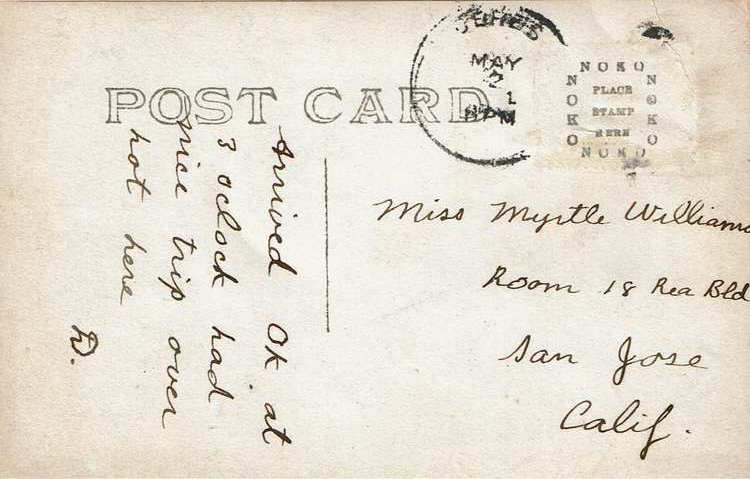 POST CARD
MAY
2
1
PM
NOKO
NOKO
NOKO
NOKO
PLACE
STAMP
HERE
Arrived OK at
3 oclock had
nice trip over
hot here
D.
Miss Myrtle Williams
Room 18 Rea Bld
San Jose
Calif.